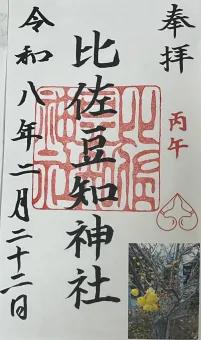 奉拝
丙午
比佐豆知神社
令和八年二月二十二日